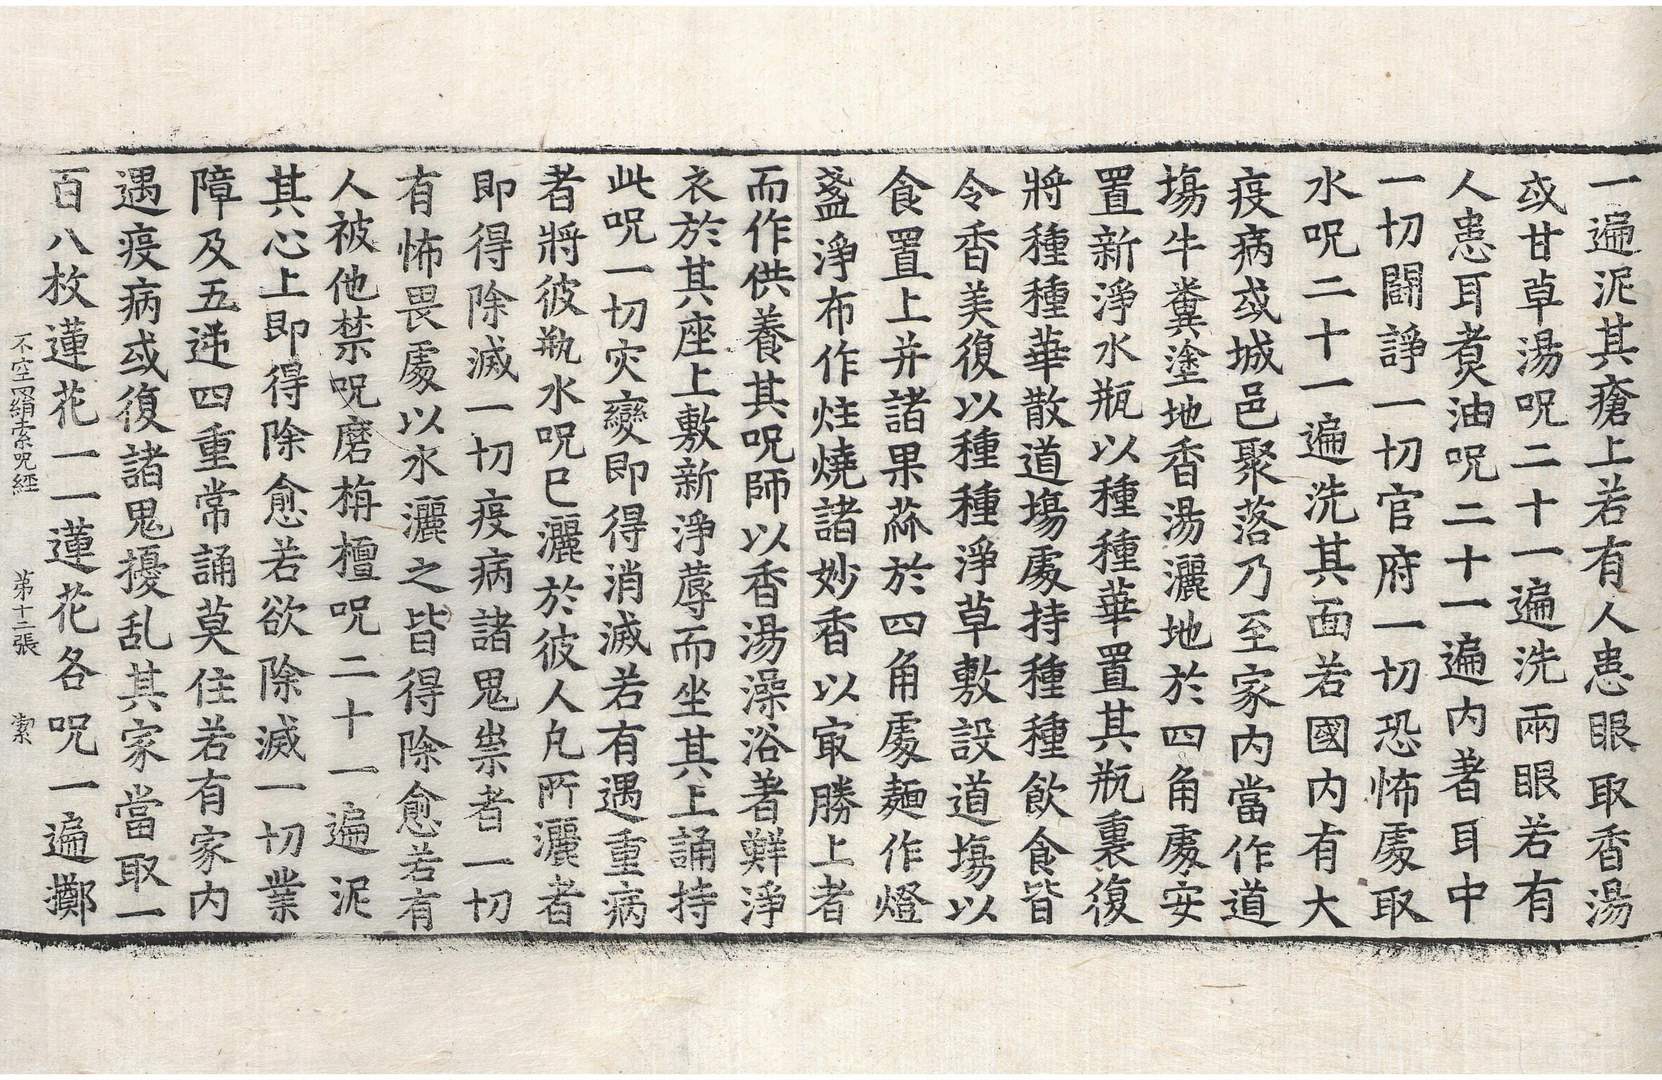 一遍泥其瘡上若有人患眼取香湯
或甘草湯呪二十一遍洗兩眼若有
人患耳煑油呪二十一遍內著耳中
一切鬪諍一切官府一切恐怖處取
水呪二十一遍洗其面若國內有大
疫病或城邑聚落乃至家內當作道
塲牛糞塗地香湯灑地於四角處安
置新淨水瓶以種種華置其瓶裏復
將種種華散道塲處持種種飲食皆
令香美復以種種淨草敷設道塲以
食置上并諸果蓏於四角處麵作燈
盞淨布作炷燒諸妙香以㝡勝上者
而作供養其呪師以香湯澡浴著鮮淨
衣於其座上敷新淨蓐而坐其上誦持
此呪一切灾變即得消滅若有遇重病
者將彼瓶水呪已灑於彼人凡所灑者
即得除滅一切疫病諸鬼祟者一切
有怖畏處以水灑之皆得除愈若有
人被他禁呪磨栴檀呪二十一遍泥
其心上即得除愈若欲除滅一切業
障及五逆四重常誦莫住若有家內
遇疫病或復諸鬼擾乱其家當取一
百八枚蓮花一一蓮花各呪一遍擲
不空罥索呪經 第十二張 絜